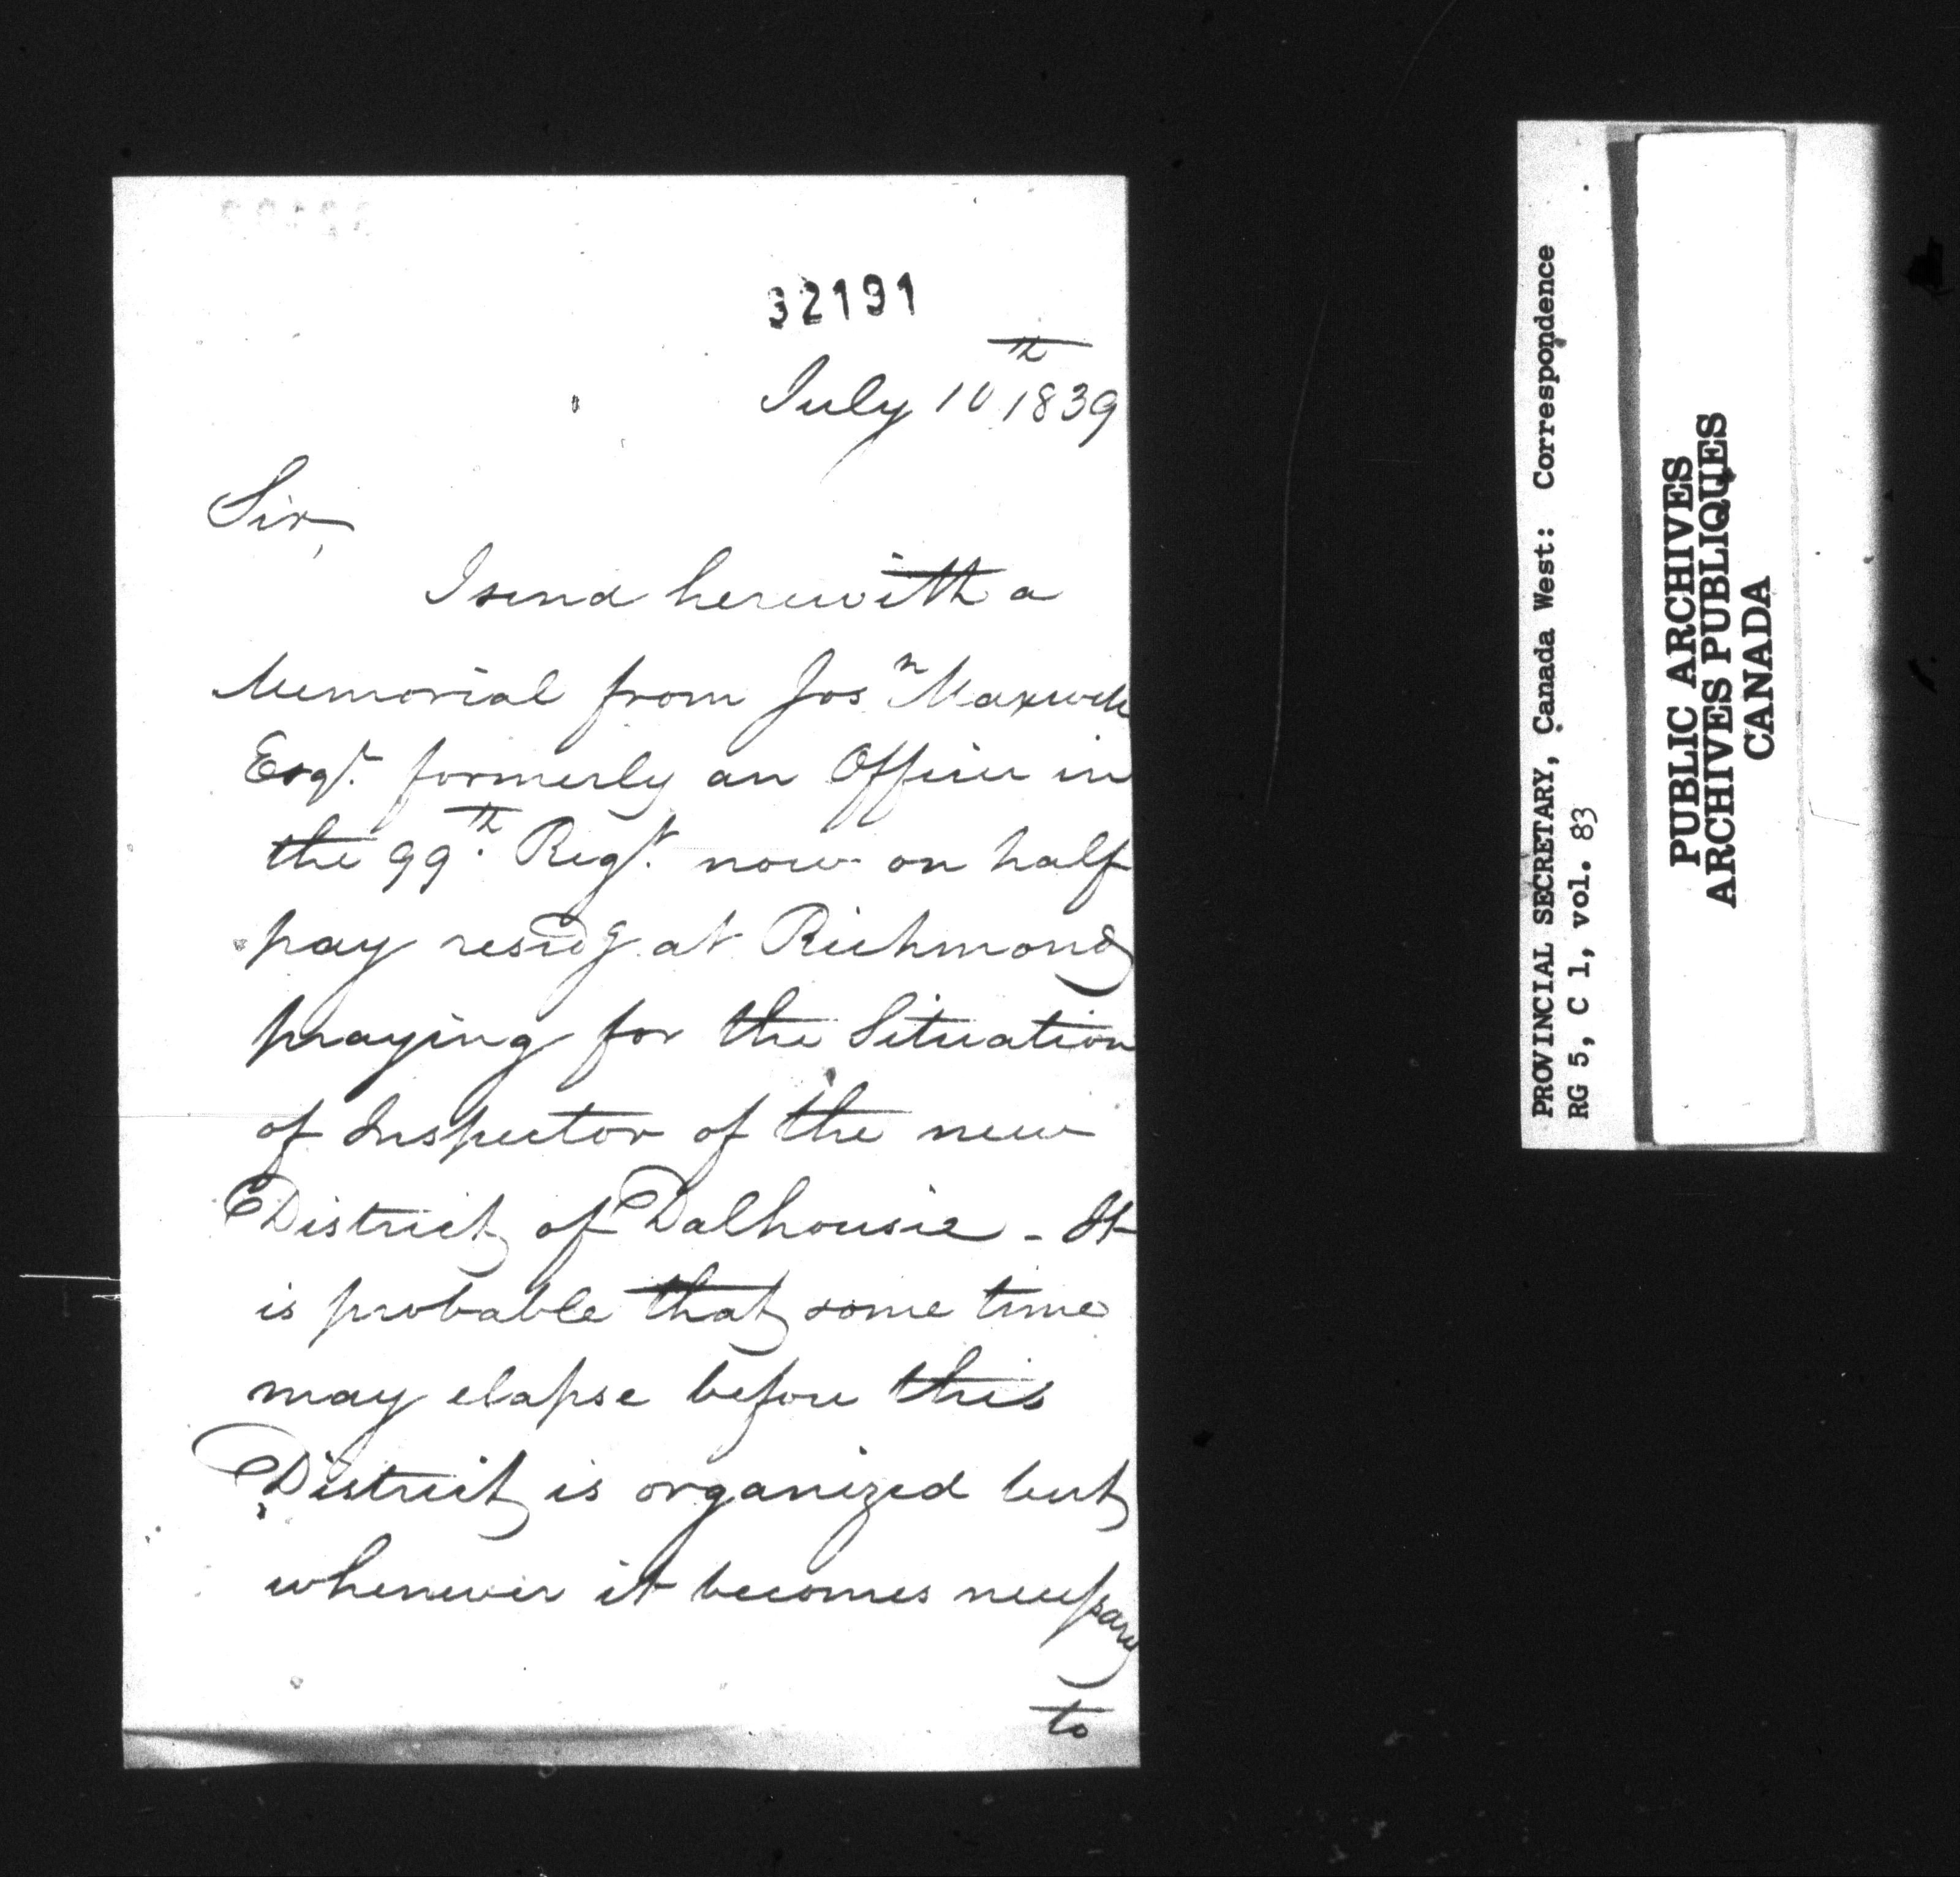 32191
July 10th 1839
Sir,
I send herewith a
Memorial from Josn Maxwell
Esqr. formerly an Officer in
the 99th Regt. now on half
pay residg at Richmond
praying for the Situation
of Inspector of the new
District of Dalhousie - It
is probable that some time
may elapse before this
District is organized but
whenever it becomes necessary
to
PROVINCIAL SECRETARY, Canada West: Correspondence
RG 5, C 1, vol. 83
PUBLIC ARCHIVES
ARCHIVES PUBLIQUES
CANADA